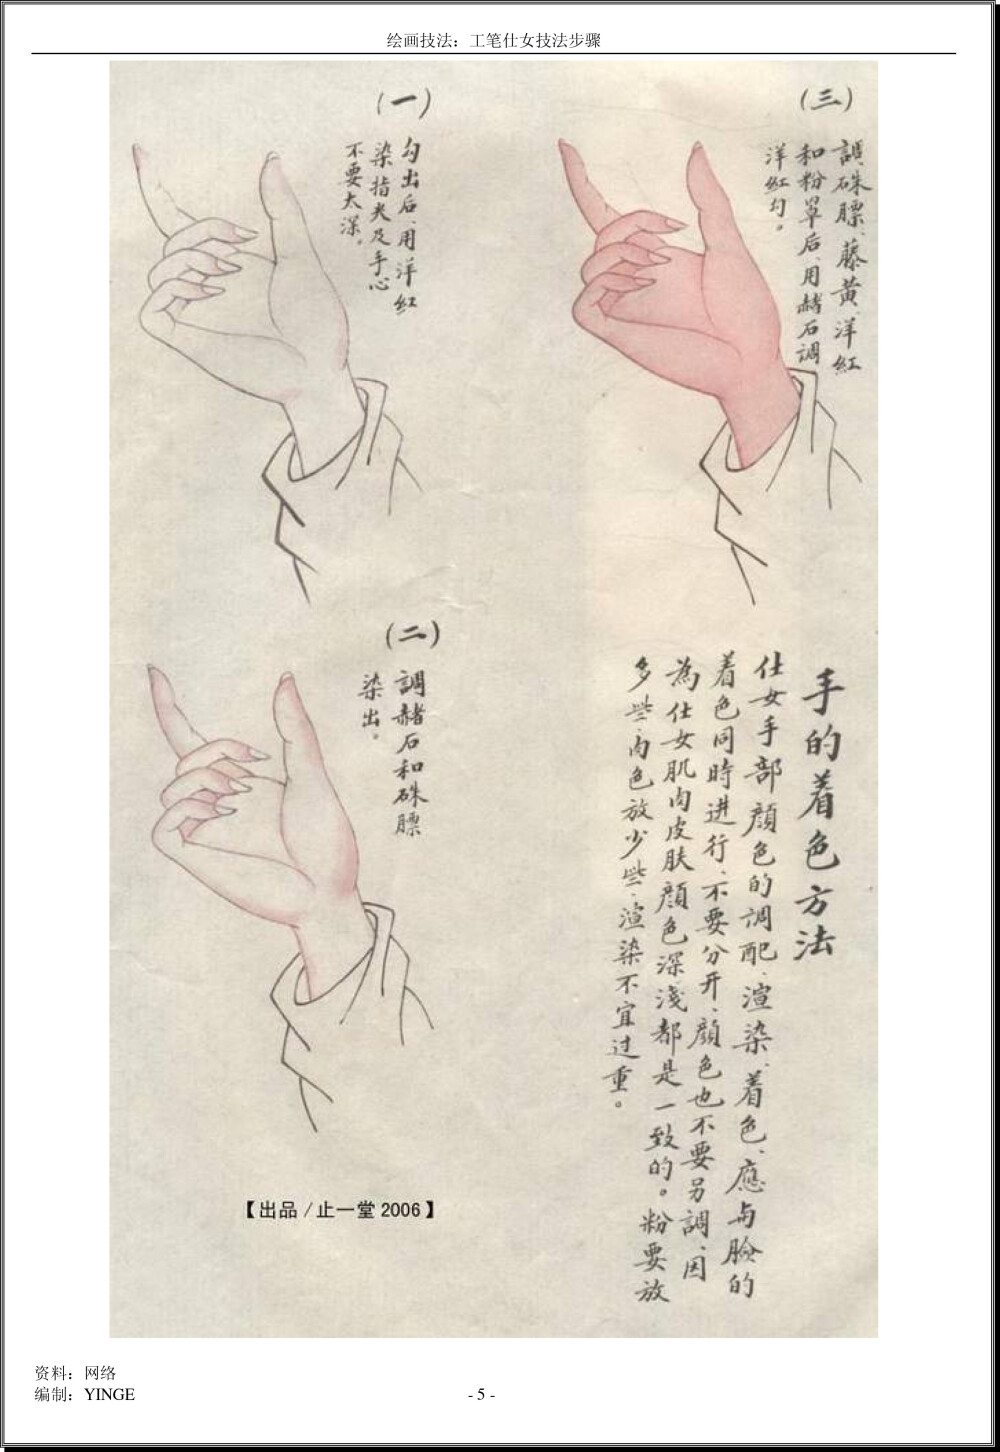 绘画技法：工笔仕女技法步骤
(一)
勾出后、用洋紅
染指夹及手心
不要太深。
(三)
調硃膘、藤黄、洋紅
和粉罩后、用赭石調
洋紅勾。
(二)
調赭石和硃膘
染出。
手的着色方法
仕女手部顔色的调配、渲染、着色、應与臉的
着色同時进行、不要分开、顔色也不要另調、因
為仕女肌肉皮肤顔色深、淺都是一致的。粉要放
多些、肉色放少些、渲染不宜过重。
【出品/止一堂2006】
资料：网络
编制：YINGE
- 5 -